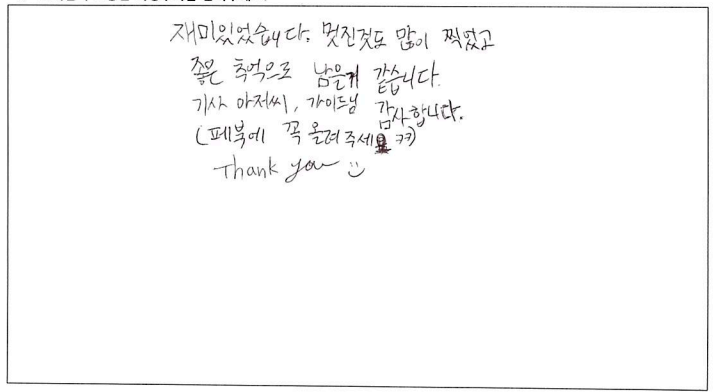 재미있었습니다. 멋진것도 많이 찍었고
좋은 추억으로 남을거 같습니다.
기사 아저씨, 가이드님 감사합니다.
(페북에 꼭 올려주세요 ㅋㅋ)
Thank you